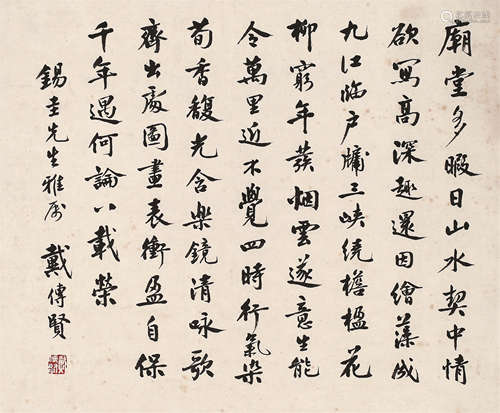 廟堂多暇日山水契中情
欲寫高深趣還因繪藻成
九江臨戶牖三峽繞檐楹花
柳窮年發烟雲逐意生能
令萬里近不覺四時行氣染
荀香馥光含樂鏡清咏歌
齊出處圖畫表衝盈自保
千年遇何論八載榮
錫圭先生雅屬 戴傳賢